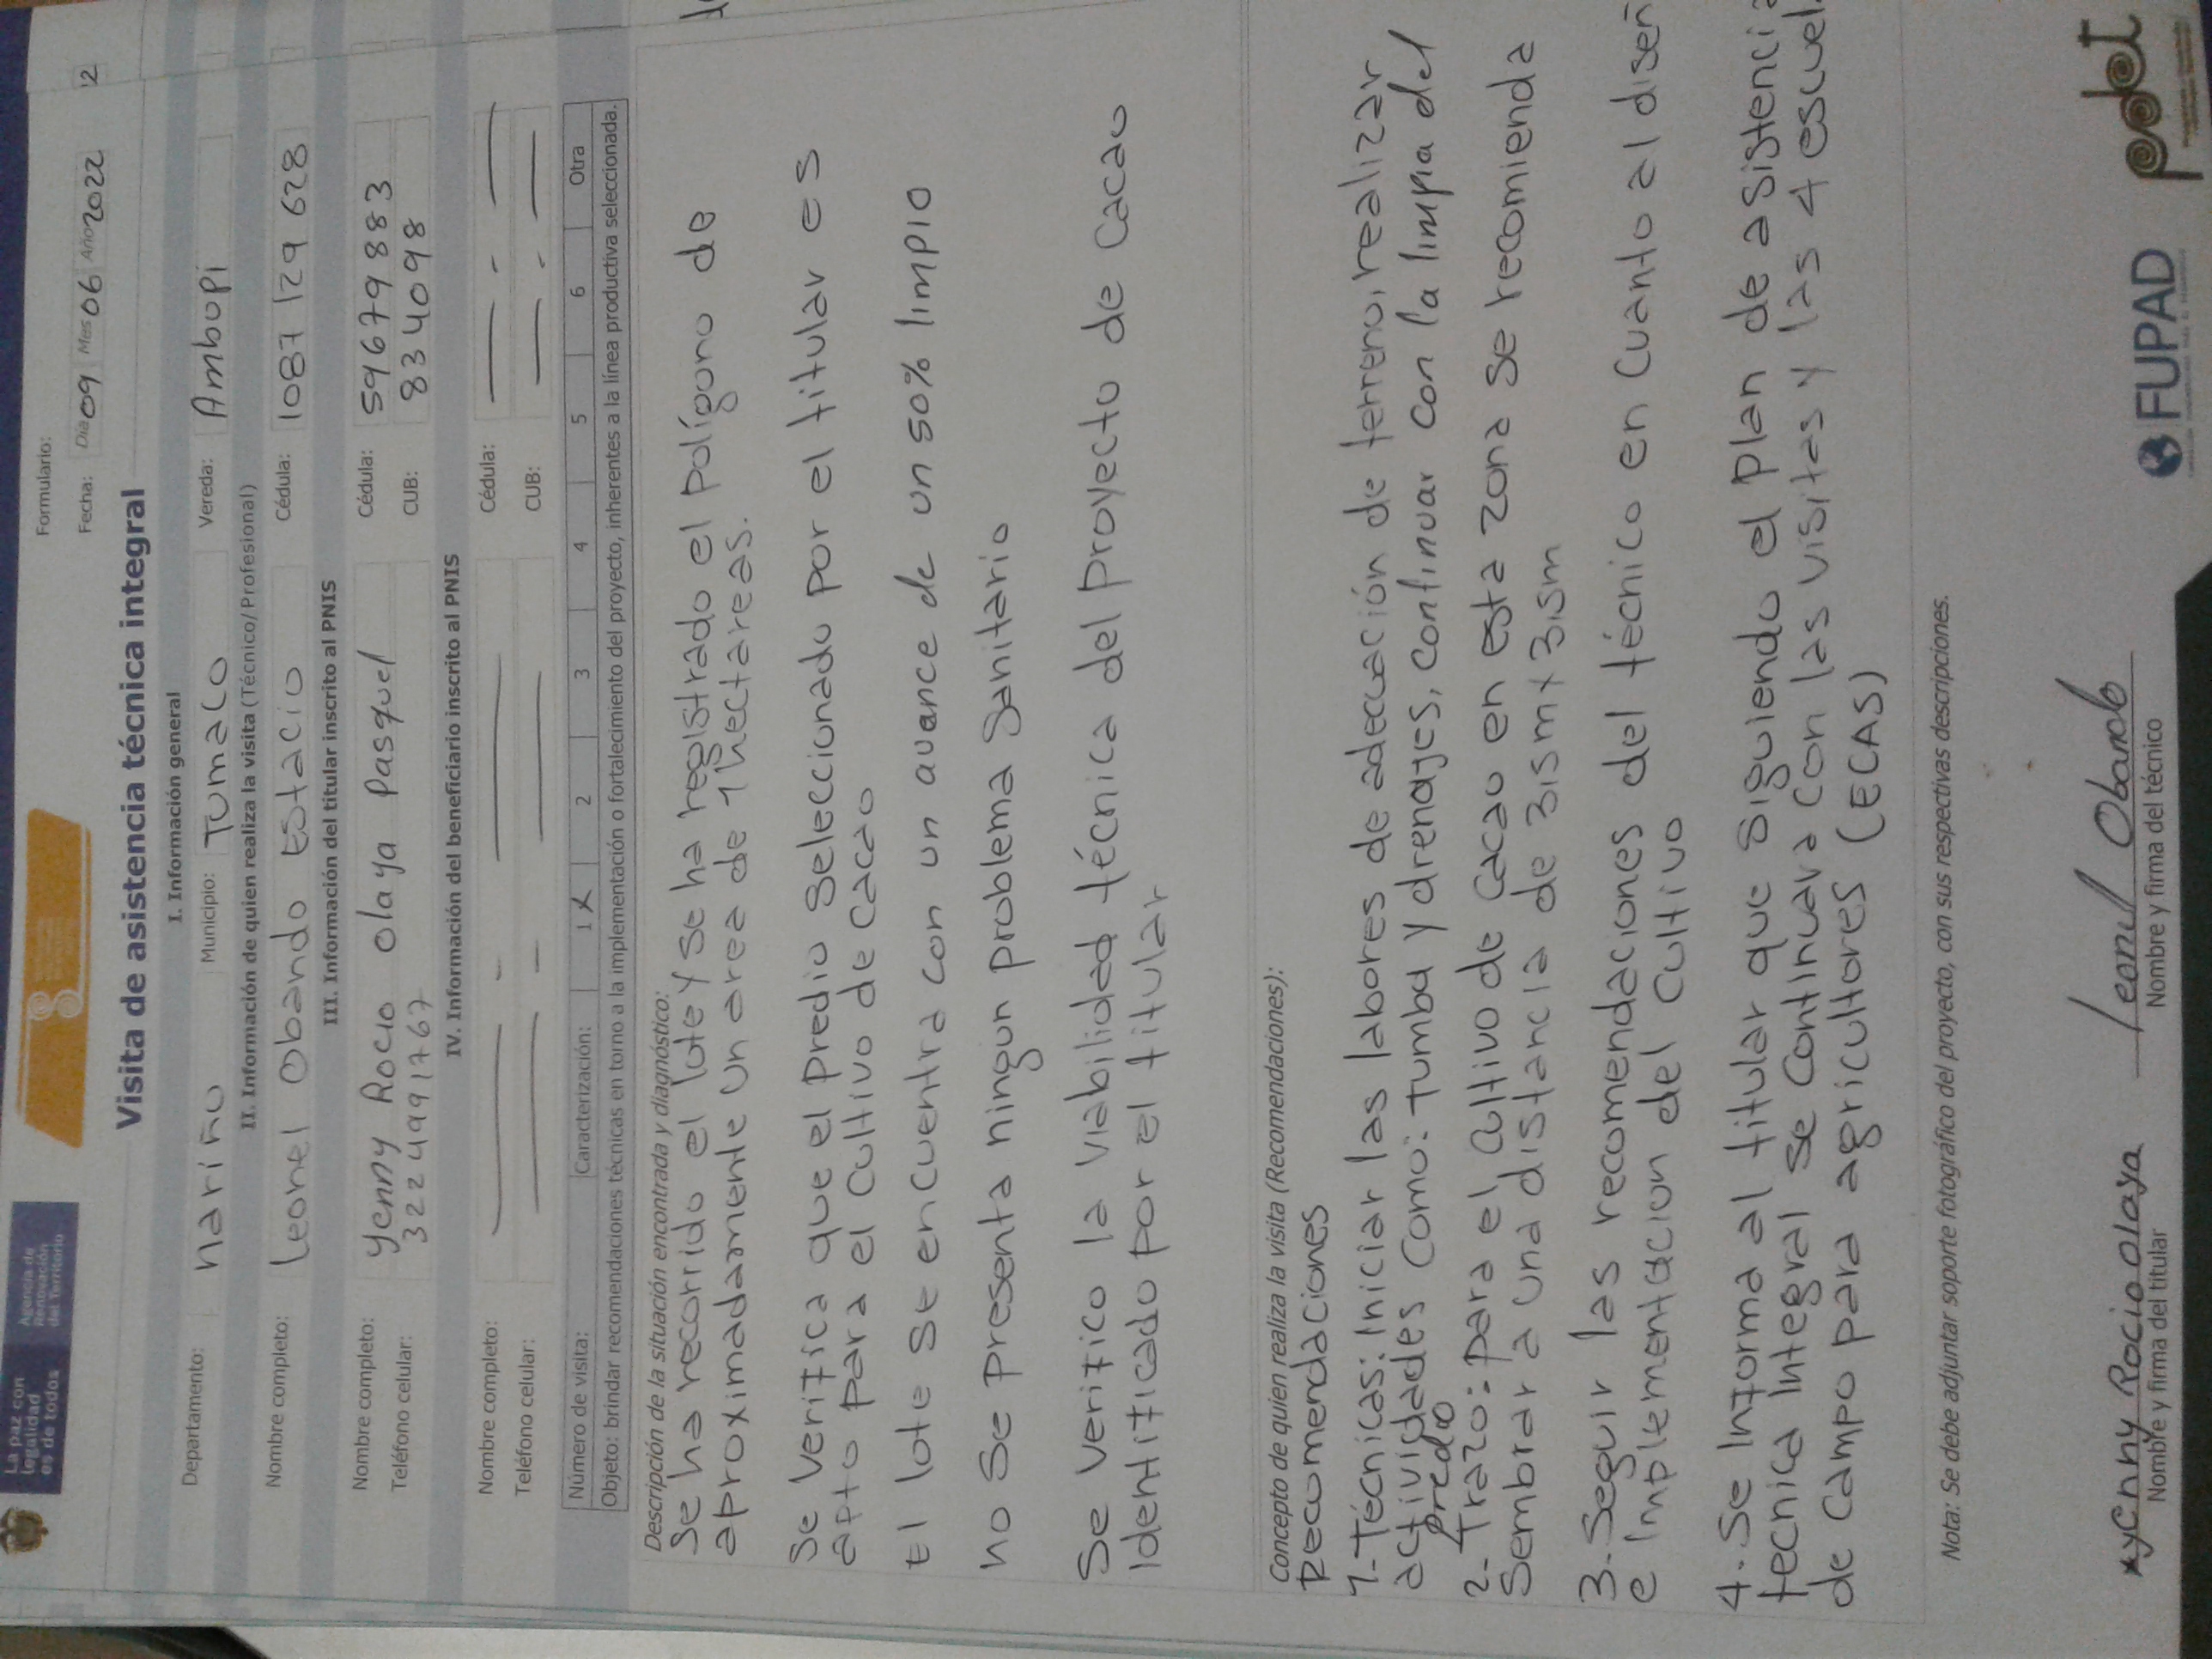 La paz con
legalidad
es de todos
Agencia de
Renovación
del Territorio
Formulario:
Fecha: Día 09 Mes 06 Año 2022
12
Visita de asistencia técnica integral
I. Información general
Departamento: nariño Municipio: Tumaco Vereda: Ambupi
II. Información de quien realiza la visita (Técnico/Profesional)
Nombre completo: Leonel Obando Estacio Cédula: 1087 129 628
III. Información del titular inscrito al PNIS
Nombre completo: Yenny Rocio Olaya Pasquel Cédula: 59679883
Teléfono celular: 3224991767 CUB: 834098
IV. Información del beneficiario inscrito al PNIS
Nombre completo: — - — Cédula: — - —
Teléfono celular: — - — CUB: — - —
Número de visita: Caracterización: 1 X 2 3 4 5 6 Otra
Objeto: brindar recomendaciones técnicas en torno a la implementación o fortalecimiento del proyecto, inherentes a la línea productiva seleccionada.
Descripción de la situación encontrada y diagnóstico:
Se ha recorrido el lote y se ha registrado el polígono de
aproximadamente un area de 1 hectareas.
Se verifica que el predio seleccionado por el titular es
apto para el cultivo de cacao
El lote se encuentra con un avance de un 50% limpio
no se presenta ningun problema sanitario
Se verifico la viabilidad técnica del proyecto de cacao
identificado por el titular
Concepto de quien realiza la visita (Recomendaciones):
Recomendaciones
1-Técnicas: Iniciar las labores de adecuación de terreno, realizar
actividades como: tumba y drenajes, continuar con la limpia del
predio
2- Trazo: para el cultivo de cacao en esta zona se recomienda
Sembrar a una distancia de 3.5m x 3.5m
3- Seguir las recomendaciones del técnico en cuanto al diseñ
e Inplementacion del cultivo
4. Se Informa al titular que siguiendo el plan de asistencia
tecnica Integral se continuara con las visitas y las 4 escuel
de campo para agricultores (ECAS)
Nota: Se debe adjuntar soporte fotográfico del proyecto, con sus respectivas descripciones.
*Yenny Rocio Olaya
Nombre y firma del titular
Leonel Obando
Nombre y firma del técnico
FUPAD
pdet